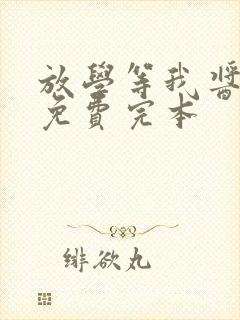 放學等我醬
免費完本
绯欲丸